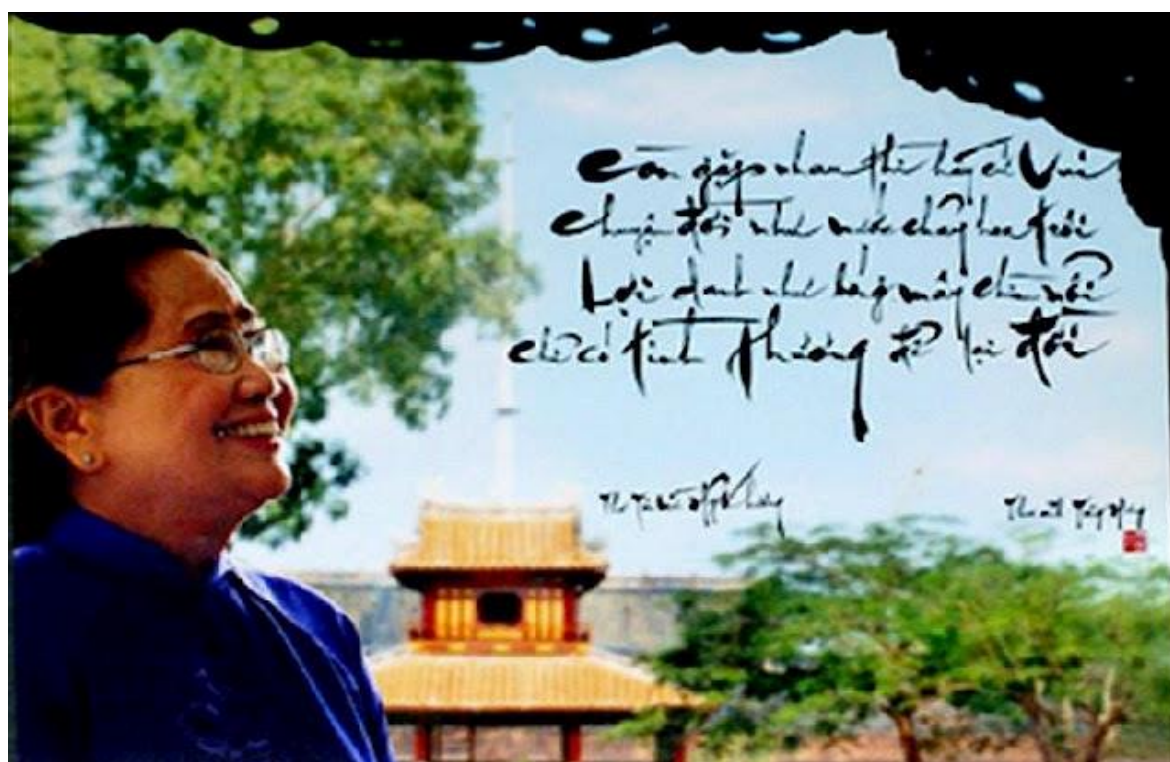 Còn gặp nhau thì hãy cứ Vui
Chuyện đời như nước chảy hoa trôi
Lợi danh như bóng mây chìm nổi
Chỉ có tình thương để lại đời